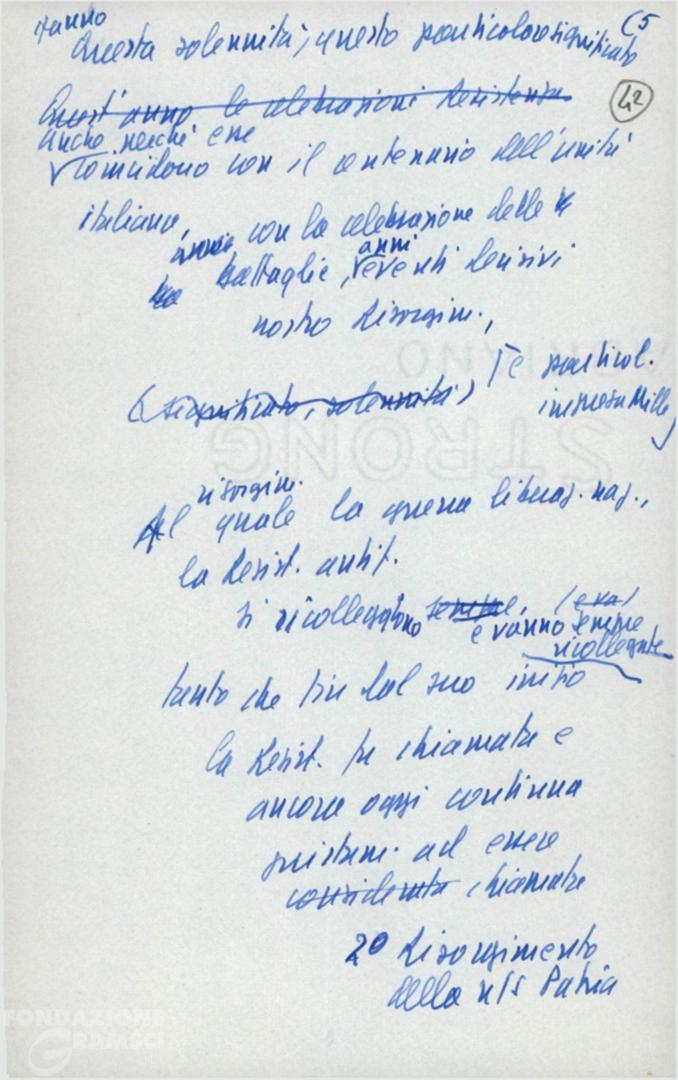 (5
42
hanno
Questa solennità, questo particolare significato
Quest'anno le celebrazioni Resistenza
anche perché esse
coincidono con il centenario dell'unità
italiana,
con la celebrazione delle
battaglie, anni eventi decisivi
nostro Risorgim.,
(significato, solennità)
particol.
impresa Mille
risorgim.
Al quale la guerra liberaz. naz.,
la Resist. antif.
si ricollegano sempre, (e va)
e vanno sempre
ricollegate
tanto che fin dal suo inizio
la Resist. fu chiamata e
ancora oggi continua
giustam. ad essere
considerata chiamata
2º Risorgimento
della n/s Patria
STRONG
FONDAZIONE
GRAMSCI